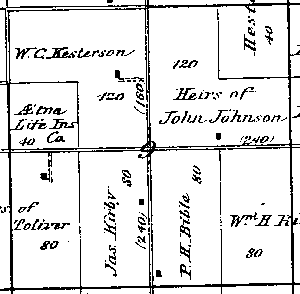 W.C. Kesterson
120
(160)
Ætna
Life Ins
Co
40
Hest
40
120
Heirs of
John Johnson
(240)
9
s of
Toliver
80
Jas. Kirby
80
(240)
P.H. Bible
80
Wm H Ki
80